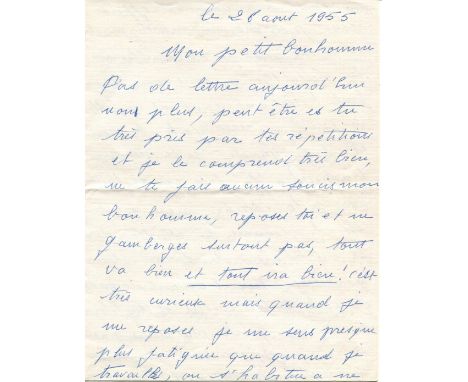 le 28 aout 1955
Mon petit bonhomme
Pas de lettre aujourd'hui
non plus, peut être es tu
très pris par tes répétitions
et je le comprend très bien,
ne te fais aucun soucis mon
bonhomme, reposes toi et ne
gamberges surtout pas, tout
va bien et tout ira bien! c'est
très curieux mais quand je
me reposes je me sens presque
plus fatiguée que quand je
travaille, on s'habitue a ne